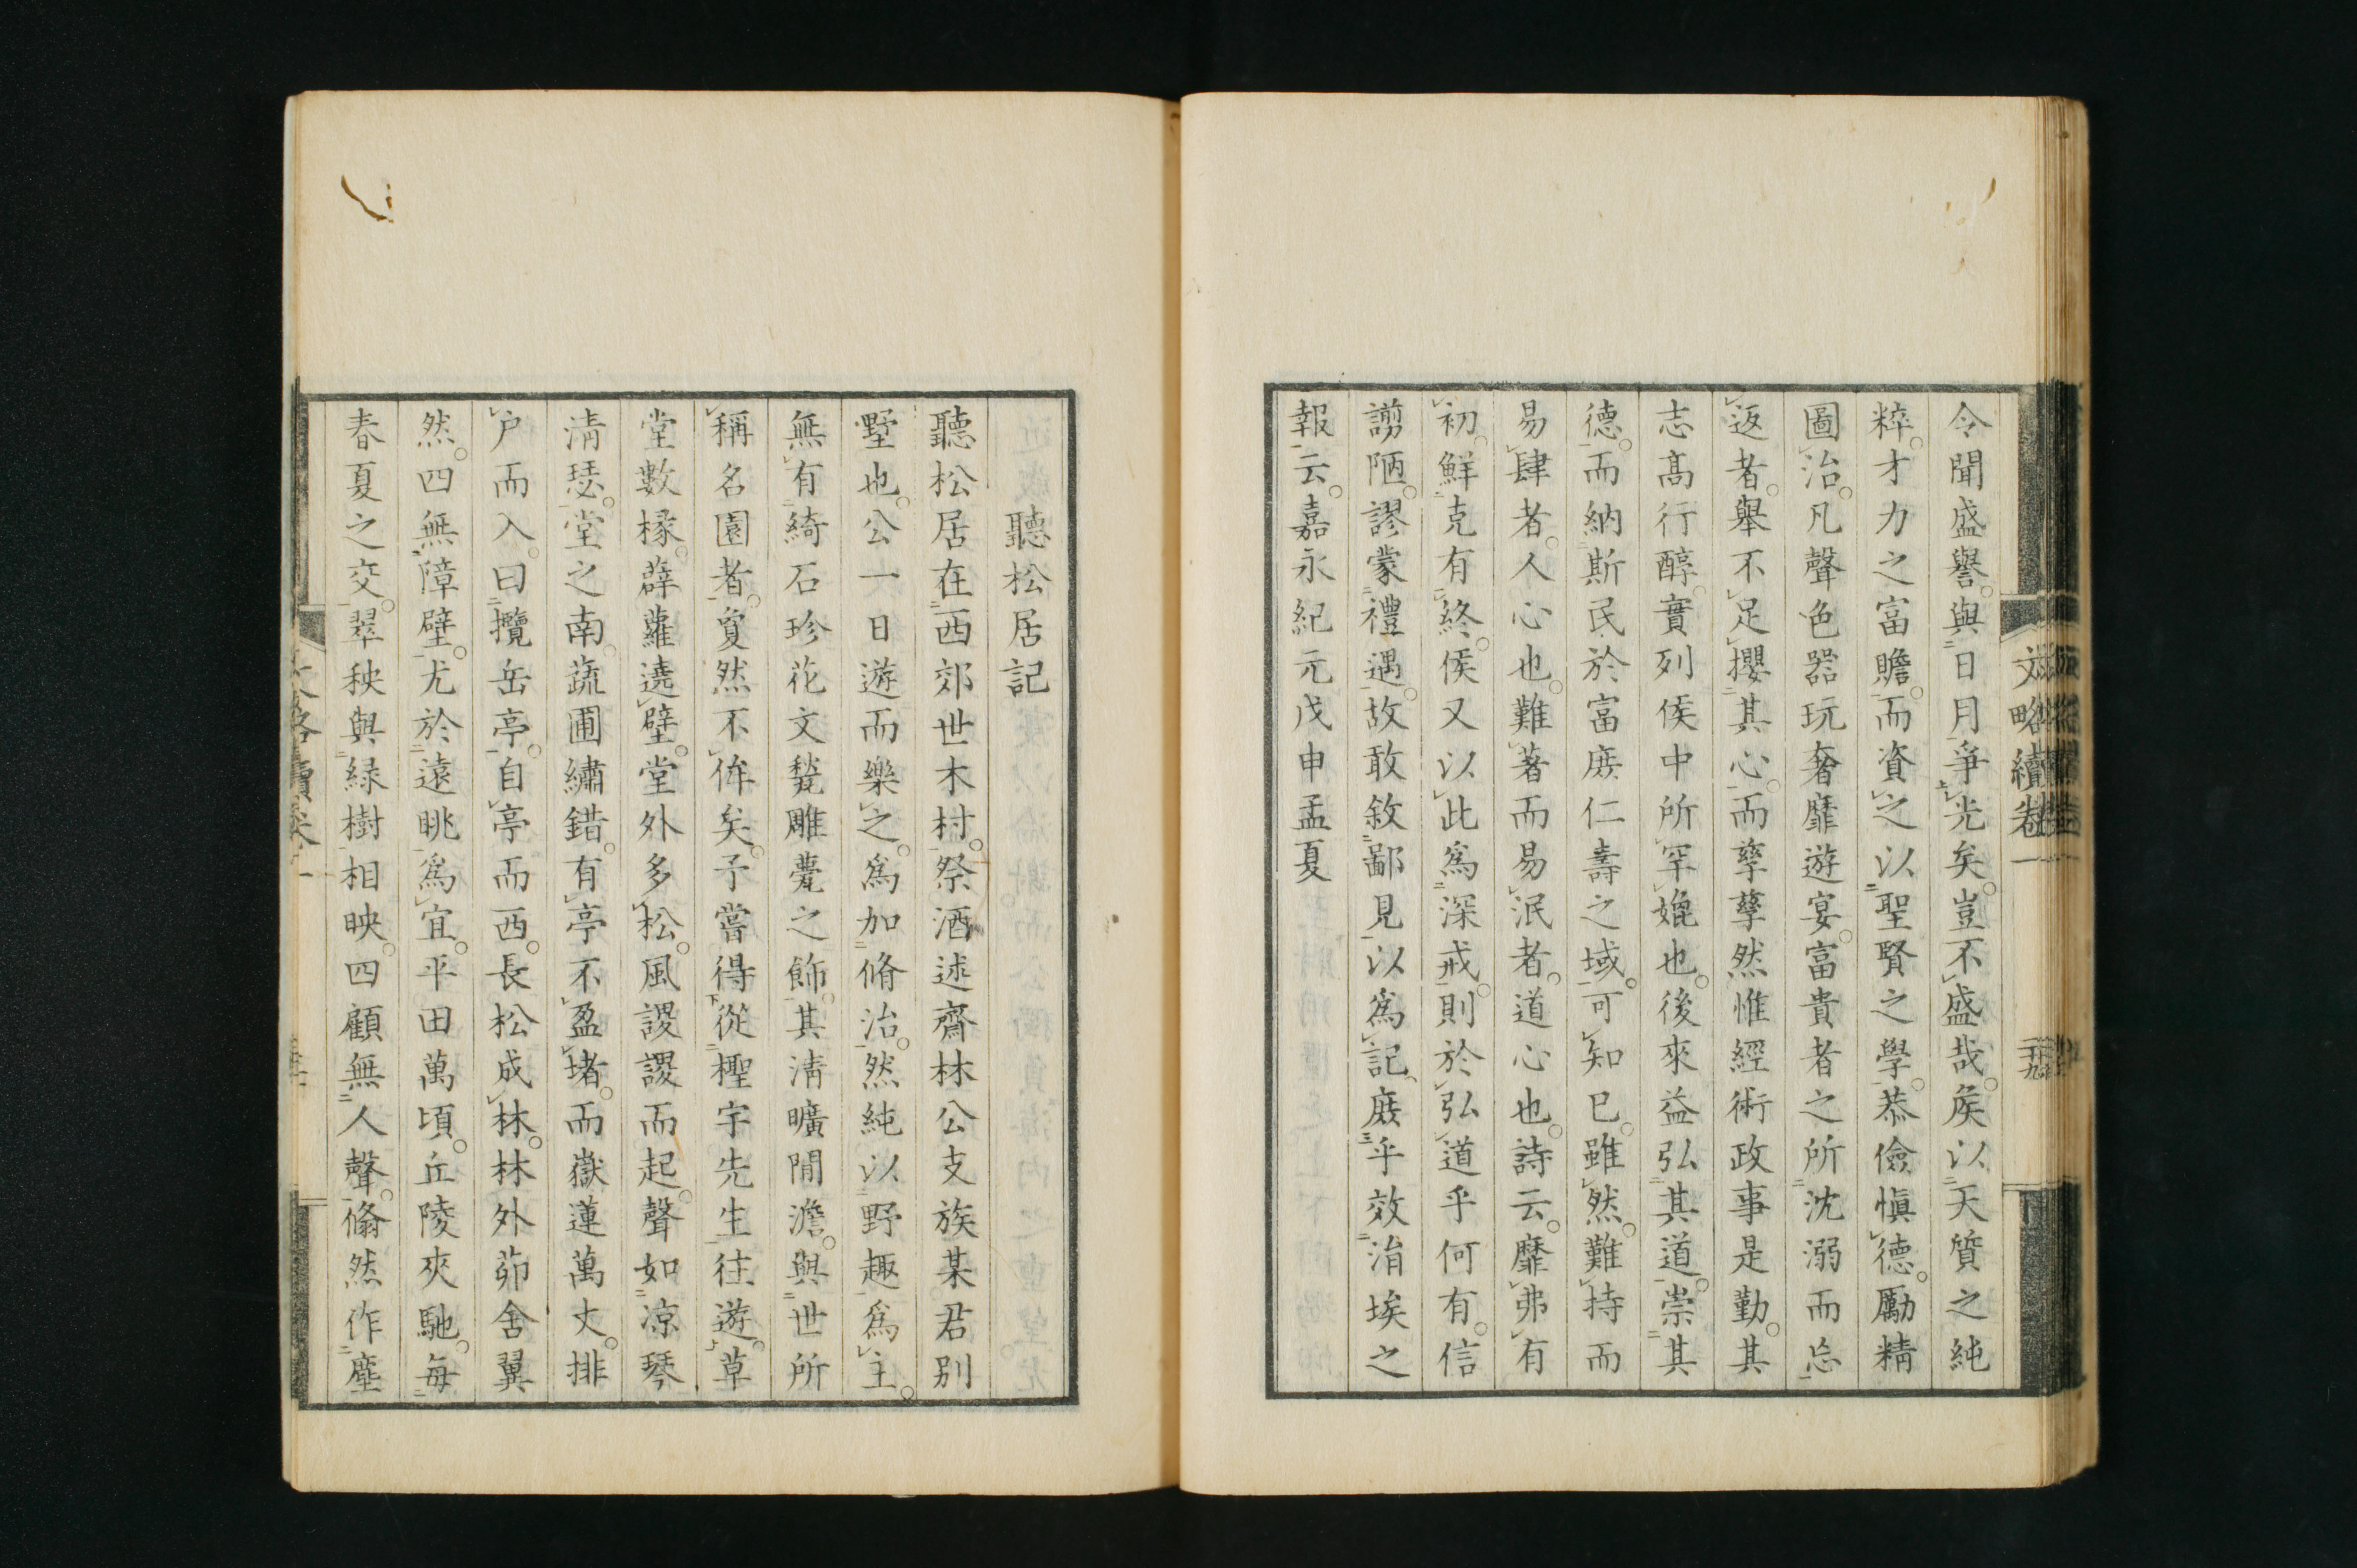 令聞盛譽。與日月爭光矣。豈不盛哉。矦以天質之純
粹。才力之富贍。而資之以聖賢之學。恭儉愼德。勵精
圖治。凡聲色器玩奢靡遊宴。富貴者之所沈溺而忘
返者。舉不足攖其心。而孳孳然惟經術政事是勤。其
志高行醇。實列侯中所罕媲也。後來益弘其道。崇其
德。而納斯民於富庶仁壽之域。可知已。雖然。難持而
易肆者。人心也。難著而易泯者。道心也。詩云。靡弗有
初。鮮克有終。侯又以此爲深戒。則於弘道乎何有。信
謭陋。謬蒙禮遇。故敢敘鄙見以爲記。庶乎效涓埃之
報云。嘉永紀元戊申孟夏
文略續卷一
二十九
聽松居記
聽松居在西郊世木村。祭酒述齋林公支族某君別
墅也。公一日遊而樂之。爲加脩治。然純以野趣爲主。
無有綺石珍花文甃雕甍之飾。其淸曠閒澹。與世所
稱名園者。夐然不侔矣。予嘗得從檉宇先生往遊。草
堂數椽。薜蘿遶壁。堂外多松。風謖謖而起。聲如凉琴
淸瑟。堂之南。蔬圃繡錯。有亭不盈堵。而嶽蓮萬丈。排
户而入。曰攬岳亭。自亭而西。長松成林。林外茆舍翼
然。四無障壁。尤於遠眺爲宜。平田萬頃。丘陵夾馳。每
春夏之交。翠秧與緑樹相映。四顧無人聲。翛然作塵